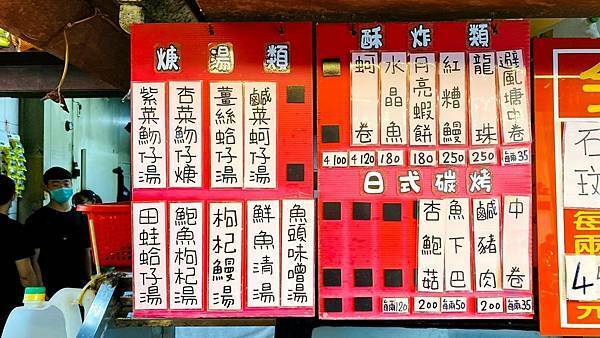 焿湯類
鹹菜蚵仔湯
薑絲蛤仔湯
杏菜魩仔焿
紫菜魩仔湯
魚頭味噌湯
鮮魚清湯
枸杞鰻湯
鮑魚枸杞湯
田蛙蛤仔湯
酥炸類
避風塘中卷 每兩35
龍珠 250
紅糟鰻 250
月亮蝦餅 180
水晶魚 180
蚵卷 4 120
4 100
日式碳烤
中卷 每兩35
鹹豬肉 200
魚下巴 每兩50
杏鮑菇 200
每兩120
石斑
每兩